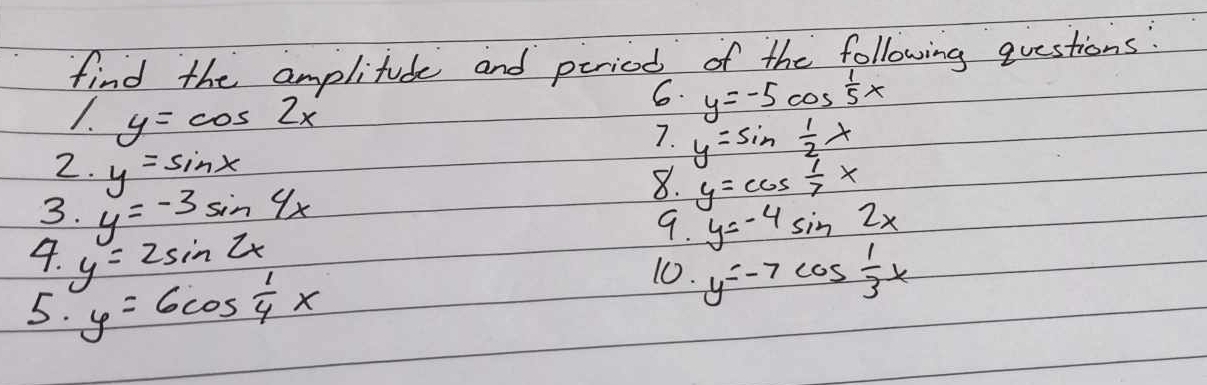 find the amplitude and period of the following questions:
1. y = cos 2x
2. y = sinx
3. y = -3 sin 4x
4. y = 2sin 2x
5. y = 6cos 1/4 x
6. y = -5 cos 1/5 x
7. y = sin 1/2 x
8. y = cos 1/7 x
9. y = -4 sin 2x
10. y = -7 cos 1/3 x